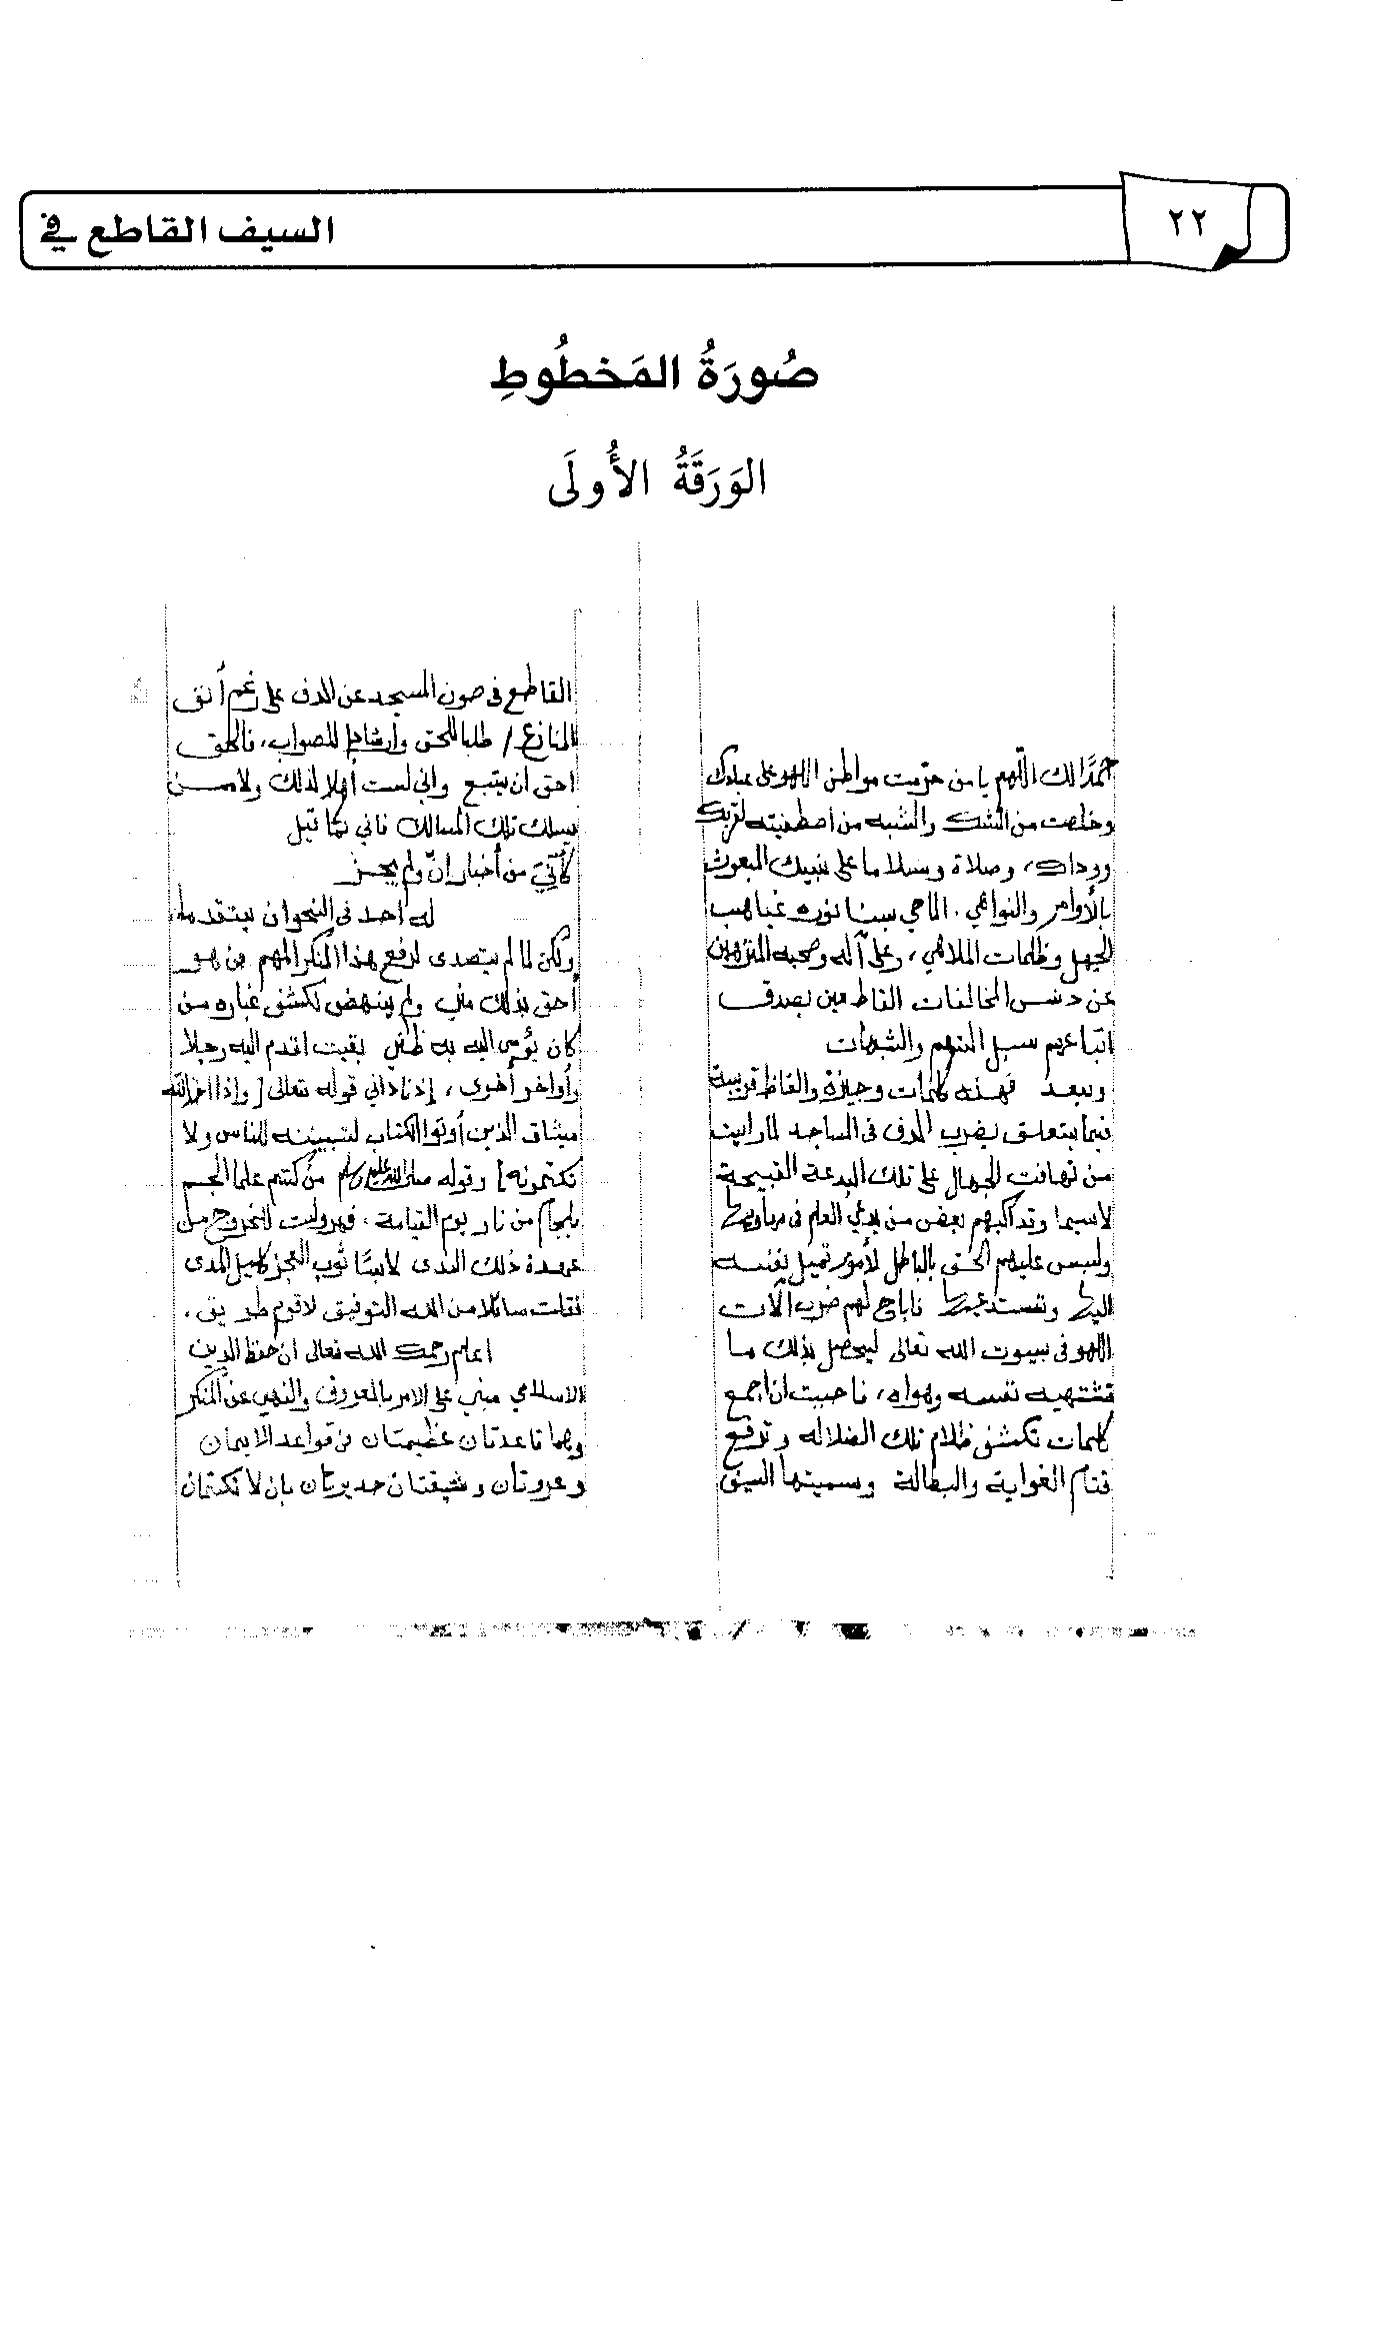 ٢٢
السيف القاطع في
صُورَةُ المَخطُوطِ
الوَرَقَةُ الأُولَى
حمدًا لك اللهم يا من حرّمت مواطن اللهو على عبادك
وخلصت من الشك والشبه من اصطفيته لقربك
وودادك، وصلاة وسلاما على نبيك المبعوث
بالأوامر والنواهي. الماحي بسنا نوره غياهب
الجهل وظلمات الملاهي، وعلى آله وصحبه المنزهين
عن دنس المخالفات القاطعين بصدق
اتباعهم سبل التهم والشبهات
وبعد فهذه كلمات وجيزة والفاظ قريبة
فيما يتعلق بضرب الدف فى المساجد لما رايت
من تهافت الجهال على تلك البدعة القبيحة
لاسيما وقد اكبهم بعض من يدعي العلم فى مهاويها
ولبس عليهم الحق بالباطل لأمور تميل نفسه
اليها وتستدعيها فاباح لهم ضرب آلات
اللهو فى بيوت الله تعالى ليحصل بذلك ما
تشتهيه نفسه وهواه، فاحببت ان اجمع
كلمات تكشف ظلام تلك الضلاله وترفع
قتام الغواية والبطالة وسميتها السيف
القاطع فى صون المسجد عن الدف على رغم أنف
المنازع/ طلبا للحق وارشادا للصواب، فالحق
احق ان يتبع واني لست أهلا لذلك ولا ممن
يسلك تلك المسالك فاني كما قيل
كأنّيَ من أخبار انّ ولم يجز
له احد فى النحو ان يتقدما
ولكن لما لم يتصدى لرفع هذا المنكر المهم من هو
أحق بذلك مني ولم ينهض لكشف غباره من
كان يؤمى اليه به ظني بقيت اقدم اليه رجلا
وأواخر أخرى، إذ ناداني قوله تعالى [وإذ اخذ الله
ميثاق الذين أوتوا الكتاب لتبيننه للناس ولا
تكتمونه] وقوله صلى الله عليه وسلم من كتم علما الجم
بلجام من نار يوم القيامة. فهرولت للخروج من
عهدة ذلك الندى لابسًا ثوب العجز كليل المدى
فقلت سائلا من الله التوفيق لاقوم طريق.
اعلم رحمك الله تعالى ان حفظ الدين
الاسلامي مبني على الامر بالمعروف والنهي عن المنكر
وهما قاعدتان عظيمتان من قواعد الايمان
وعروتان وثيقتان جديرتان بان لا تكتمان